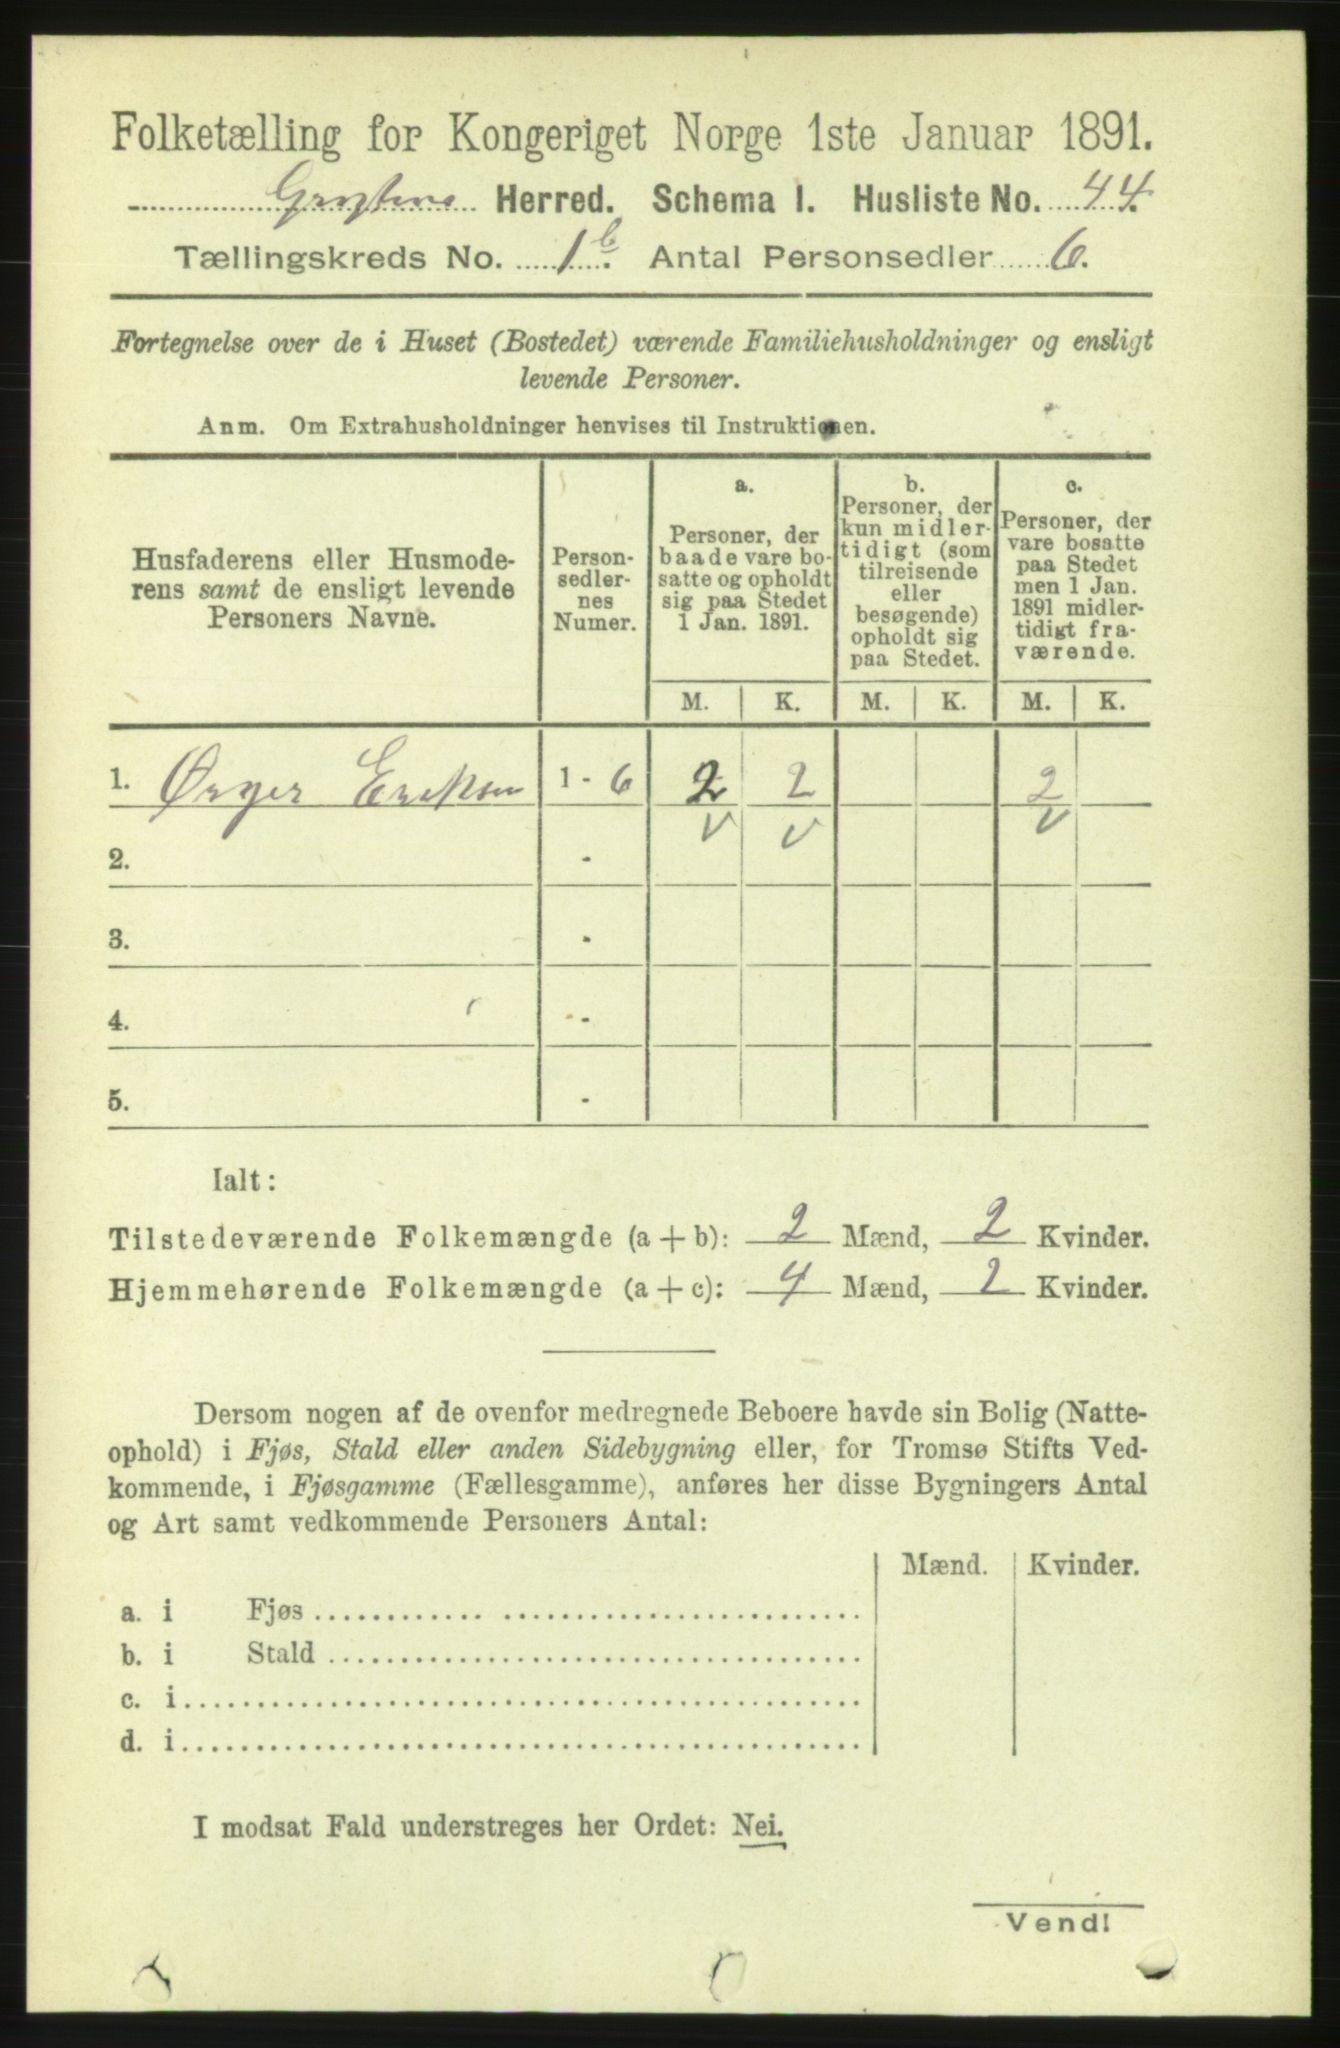 Folketælling for Kongeriget Norge 1ste Januar 1891.
Grytens Herred. Schema I. Husliste No. 44.
Tællingskreds No. 1b. Antal Personsedler 6.
Fortegnelse over de i Huset (Bostedet) værende Familiehusholdninger og ensligt
levende Personer.
Anm. Om Extrahusholdninger henvises til Instruktionen.
Husfaderens eller Husmode-
rens samt de ensligt levende
Personers Navne.
Person-
sedler-
nes
Numer.
a.
Personer, der
baade vare bo-
satte og opholdt
sig paa Stedet
1 Jan. 1891.
b.
Personer, der
kun midler-
tidigt (som
tilreisende
eller
besøgende)
opholdt sig
paa Stedet.
c.
Personer, der
vare bosatte
paa Stedet
men 1 Jan.
1891 midler-
tidigt fra-
værende.
M. K. M. K. M. K.
1. Eriksen 1 - 6 2 2 2
2. -
3. -
4. -
5. -
Ialt:
Tilstedeværende Folkemængde (a + b): 2 Mænd, 2 Kvinder.
Hjemmehørende Folkemængde (a + c): 4 Mænd, 2 Kvinder.
Dersom nogen af de ovenfor medregnede Beboere havde sin Bolig (Natte-
ophold) i Fjøs, Stald eller anden Sidebygning eller, for Tromsø Stifts Ved-
kommende, i Fjøsgamme (Fællesgamme), anføres her disse Bygningers Antal
og Art samt vedkommende Personers Antal:
Mænd. Kvinder.
a. i Fjøs
b. i Stald
c. i
d. i
I modsat Fald understreges her Ordet: Nei.
Vend!